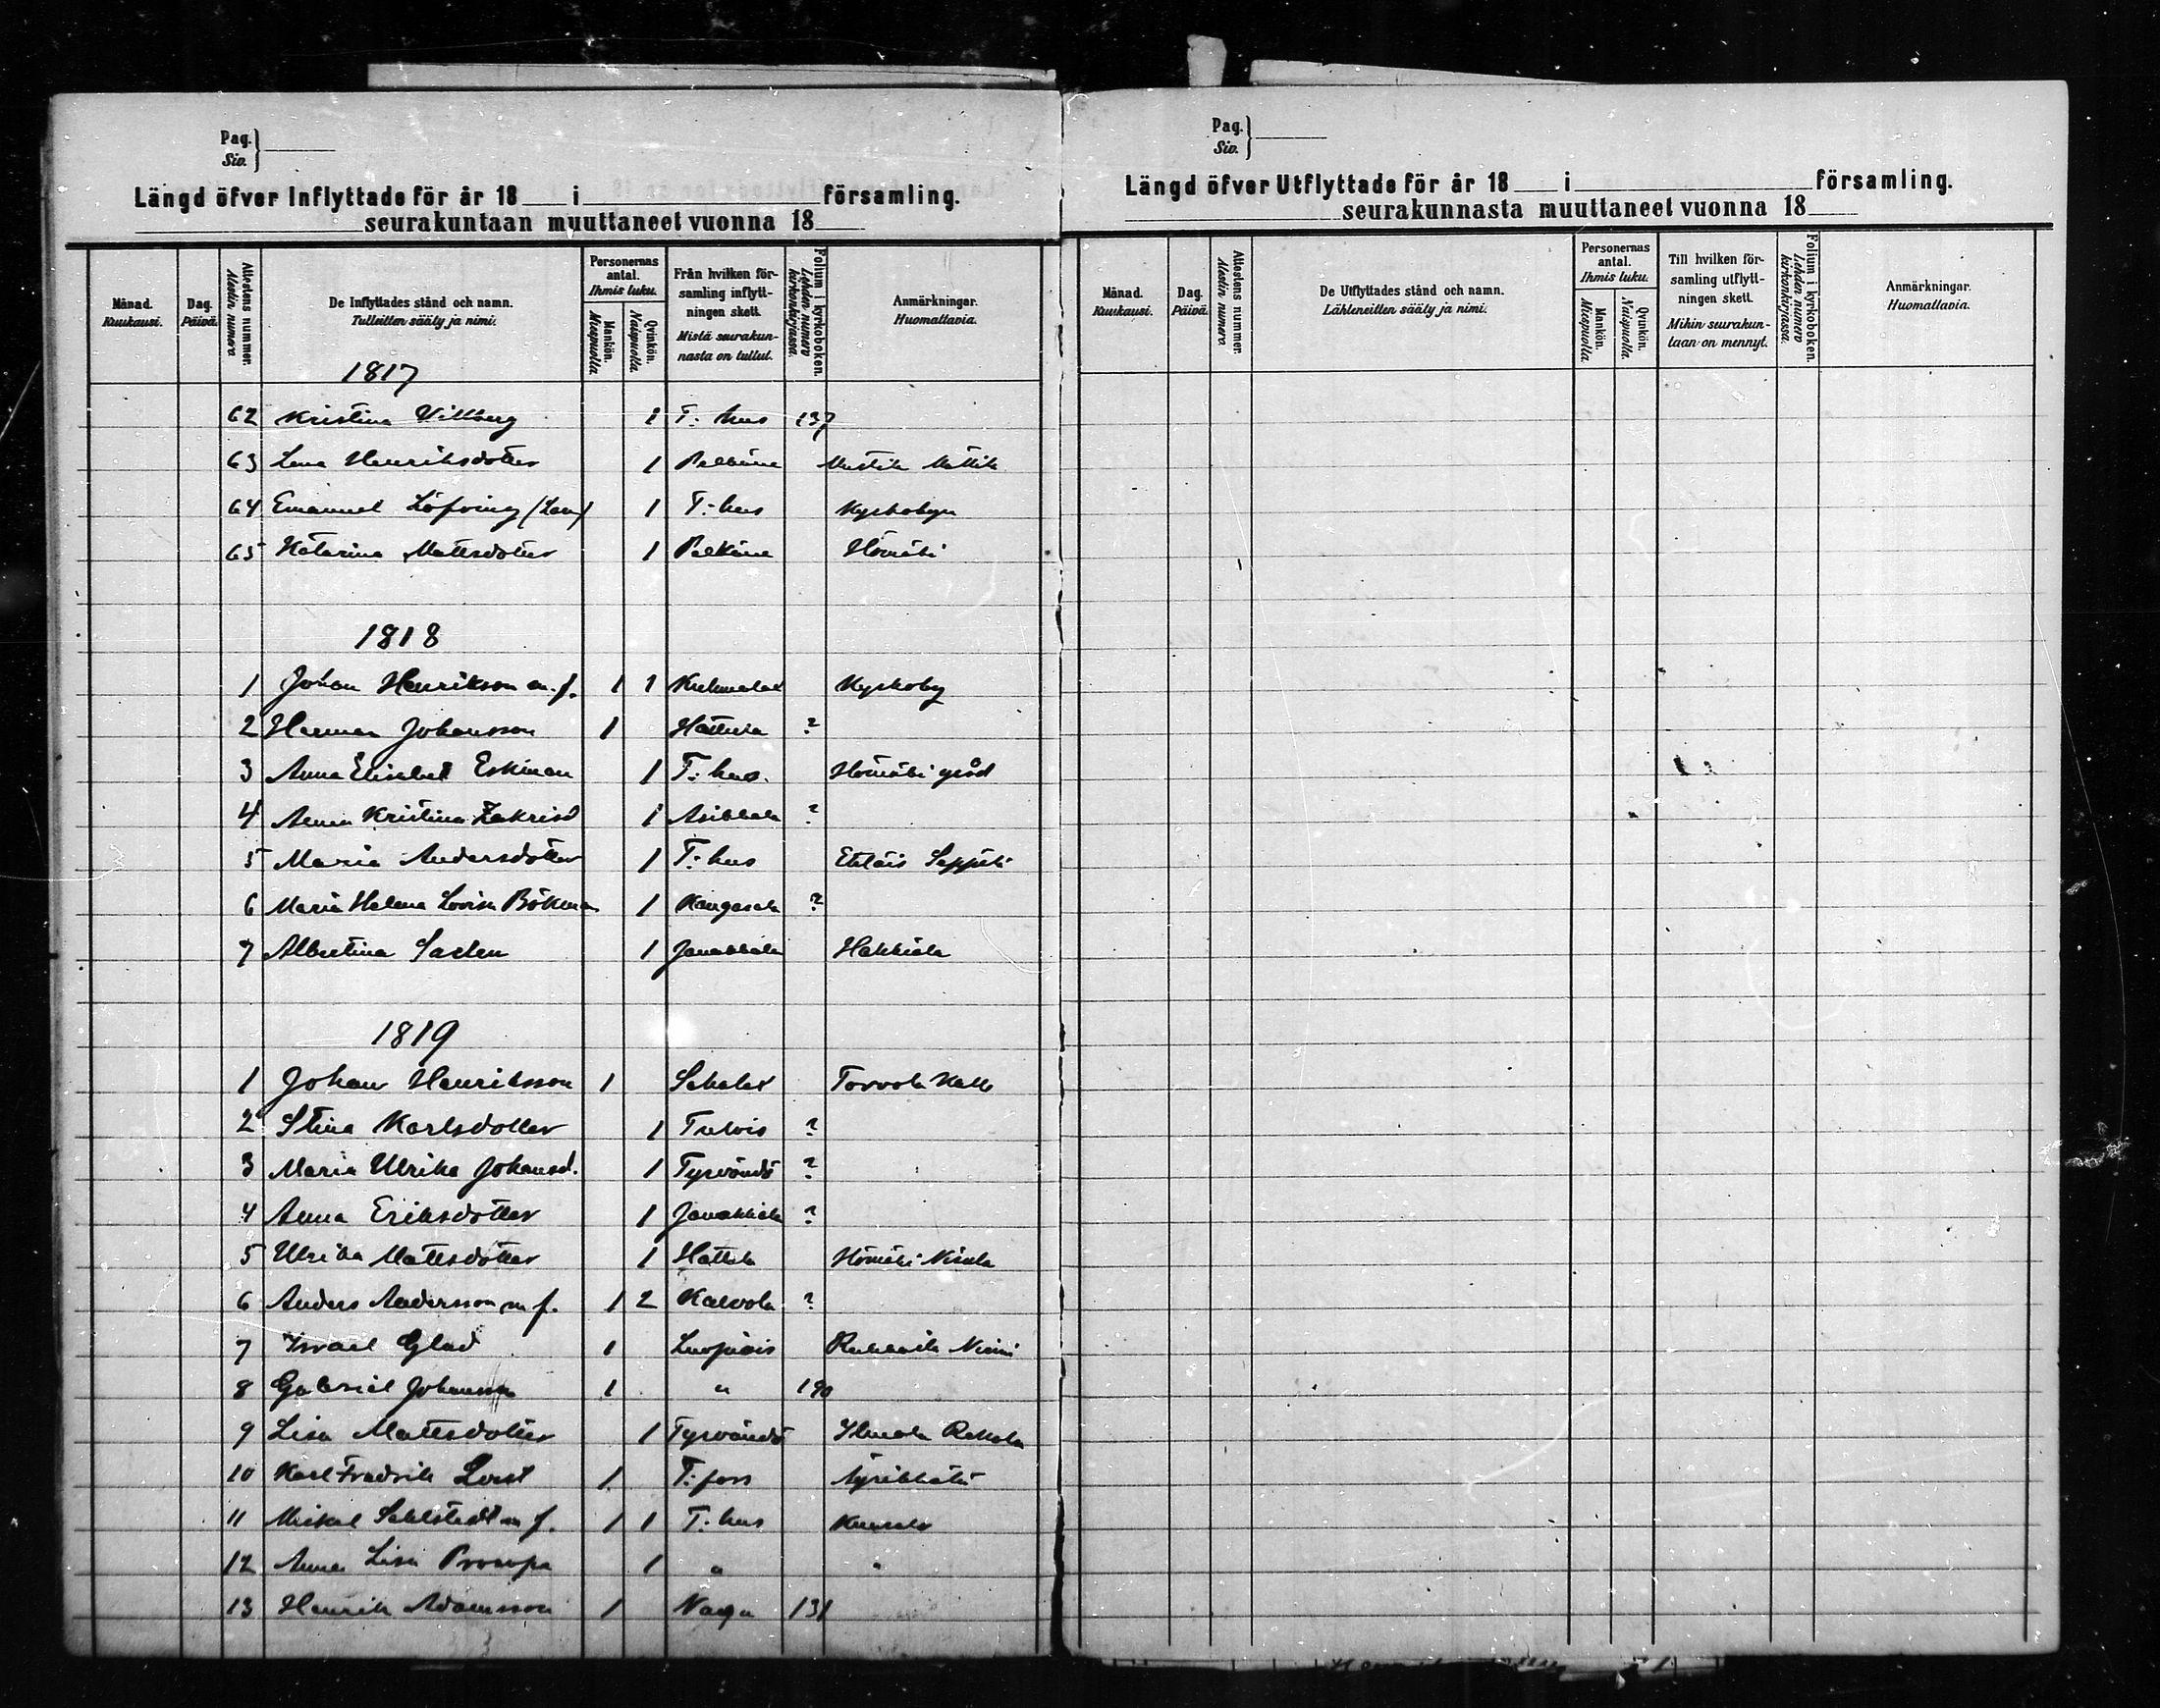 Pag.
Siv.
Längd öfver Inflyttade för år 18 i församling.
seurakuntaan muuttaneet vuonna 18
Månad. Kuukausi.
Dag. Päivä.
Attestens nummer. Atestin numero.
De Inflyttades stånd och namn. Tulleitten sääty ja nimi.
Personernas antal. Ihmis luku.
Mankön. Miespuolia.
Qvinkön. Naispuolia.
Från hvilken församling inflyttningen skett. Mistä seurakunnasta on tullut.
Folium i kyrkoboken. Lehden numero kirkonkirjassa.
Anmärkningar. Huomattavia.
1817
62 Kristina Villberg 1 T:hus 137
63 Lena Henriksdotter 1 Pelkäne
64 Emanuel Löfving 1 T:hus Kyrkobyn
65 Katarina Mattsdotter 1 Pelkäne Hömäki
1818
1 Johan Henrikson m. f. 1 1 Kuhmalat Kyrkoby
2 Herman Johansson 1 Hattula ?
3 Anna Elisabet Eskman 1 T:hus. Hömäki gård
4 Anna Kristina Zakrisd 1 Asikkala ?
5 Maria Andersdotter 1 T:hus Etuläis Seppälä
6 Maria Helena Lovisa Bökman 1 Kangasala ?
7 Albertina 1 Janakkala Hakkiala
1819
1 Johan Henriksson 1 Sahalax Torvola Kalle
2 Stina Karlsdotter 1 Tulois ?
3 Maria Ulrika Johansd. 1 Tyrväntö ?
4 Anna Eriksdotter 1 Janakkala ?
5 Ulrika Mattsdotter 1 Hattula Hömäki
6 Anders Andersson m f. 1 2 Kalvola ?
7 Israel Glad 1 Luopiois Niemi
8 Gabriel Johansson 1 " 190
9 Lisa Mattsdotter 1 Tyrväntö
10 Karl Fredrik 1 T:fors
11 Mikael Sahlstedt m f. 1 1 T:hus
12 Anna Lisa 1 " "
13 Henrik Adamsson 1 Nagu 131
Pag.
Siv.
Längd öfver Utflyttade för år 18 i församling.
seurakunnasta muuttaneet vuonna 18
Månad. Kuukausi.
Dag. Päivä.
Attestens nummer. Atestin numero.
De Utflyttades stånd och namn. Lähteneitten sääty ja nimi.
Personernas antal. Ihmis luku.
Mankön. Miespuolia.
Qvinkön. Naispuolia.
Till hvilken församling utflyttningen skett. Mihin seurakuntaan on mennyt.
Folium i kyrkoboken. Lehden numero kirkonkirjassa.
Anmärkningar. Huomattavia.